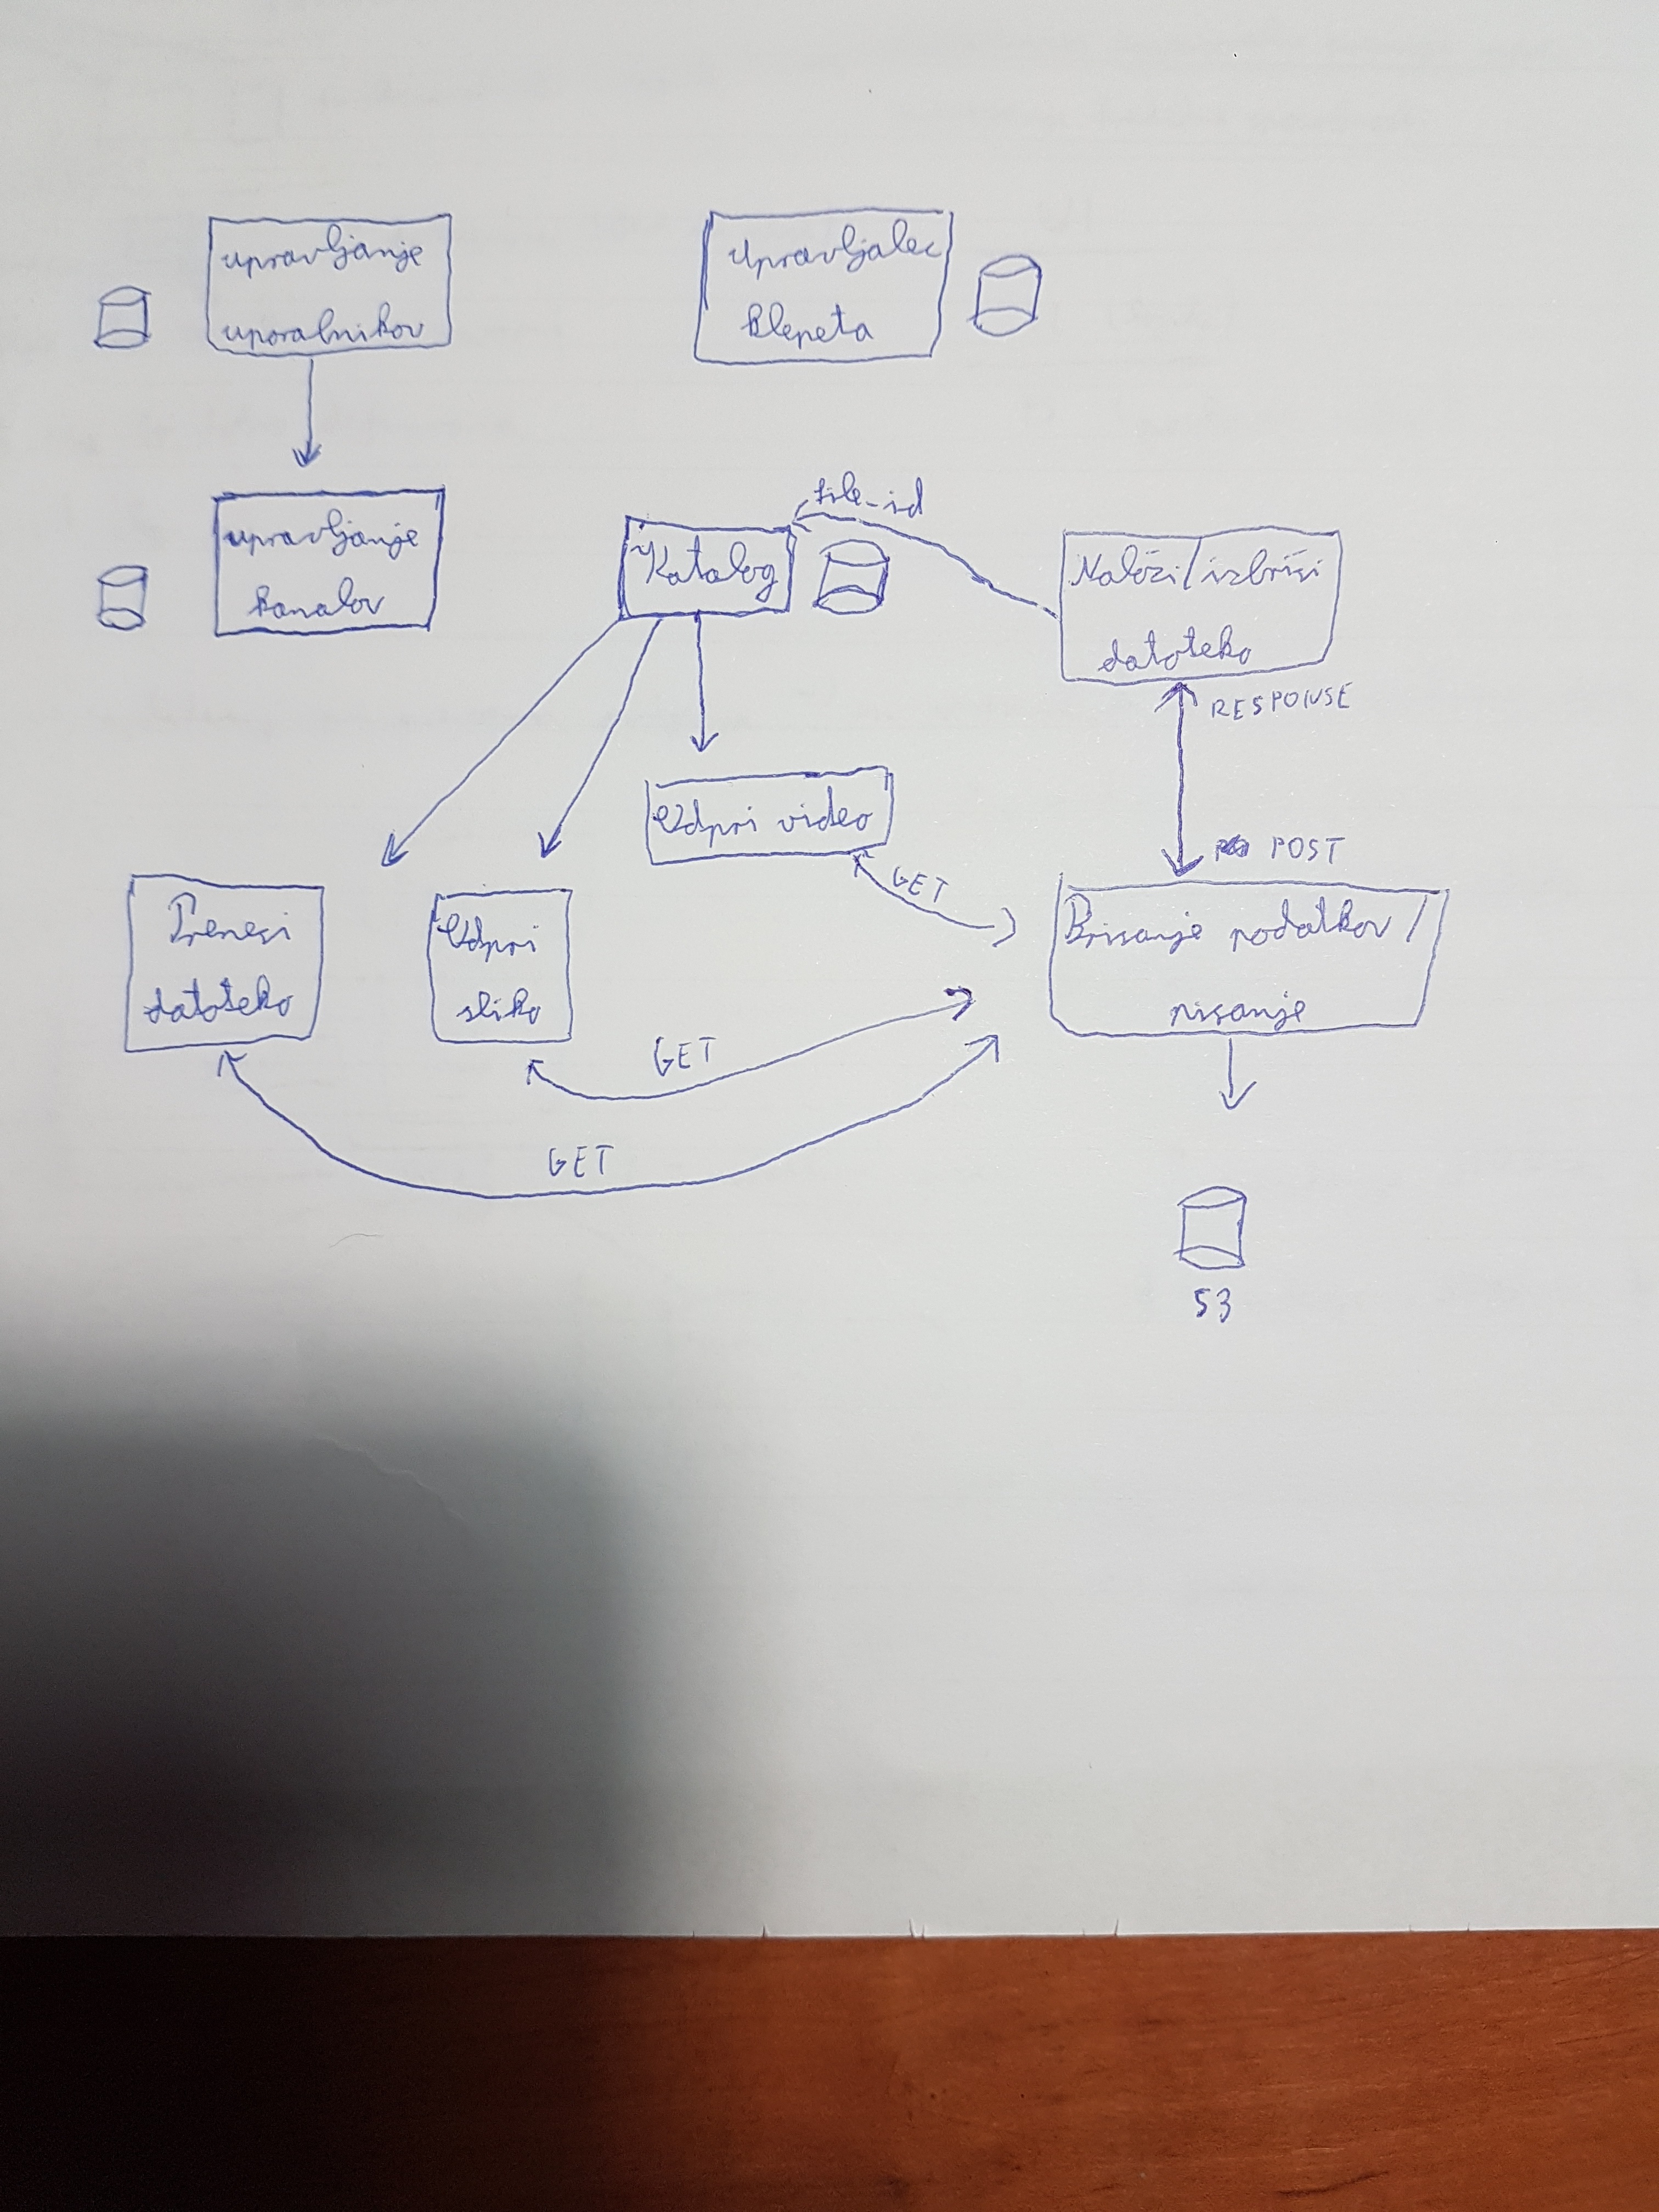 upravljanje
uporabnikov
Upravljalec
klepeta
file_id
upravljanje
kanalov
Katalog
Naloži/izbriši
datoteko
RESPONSE
Odpri video
POST
GET
Prenesi
datoteko
Odpri
sliko
Brisanje podatkov /
pisanje
GET
GET
S3